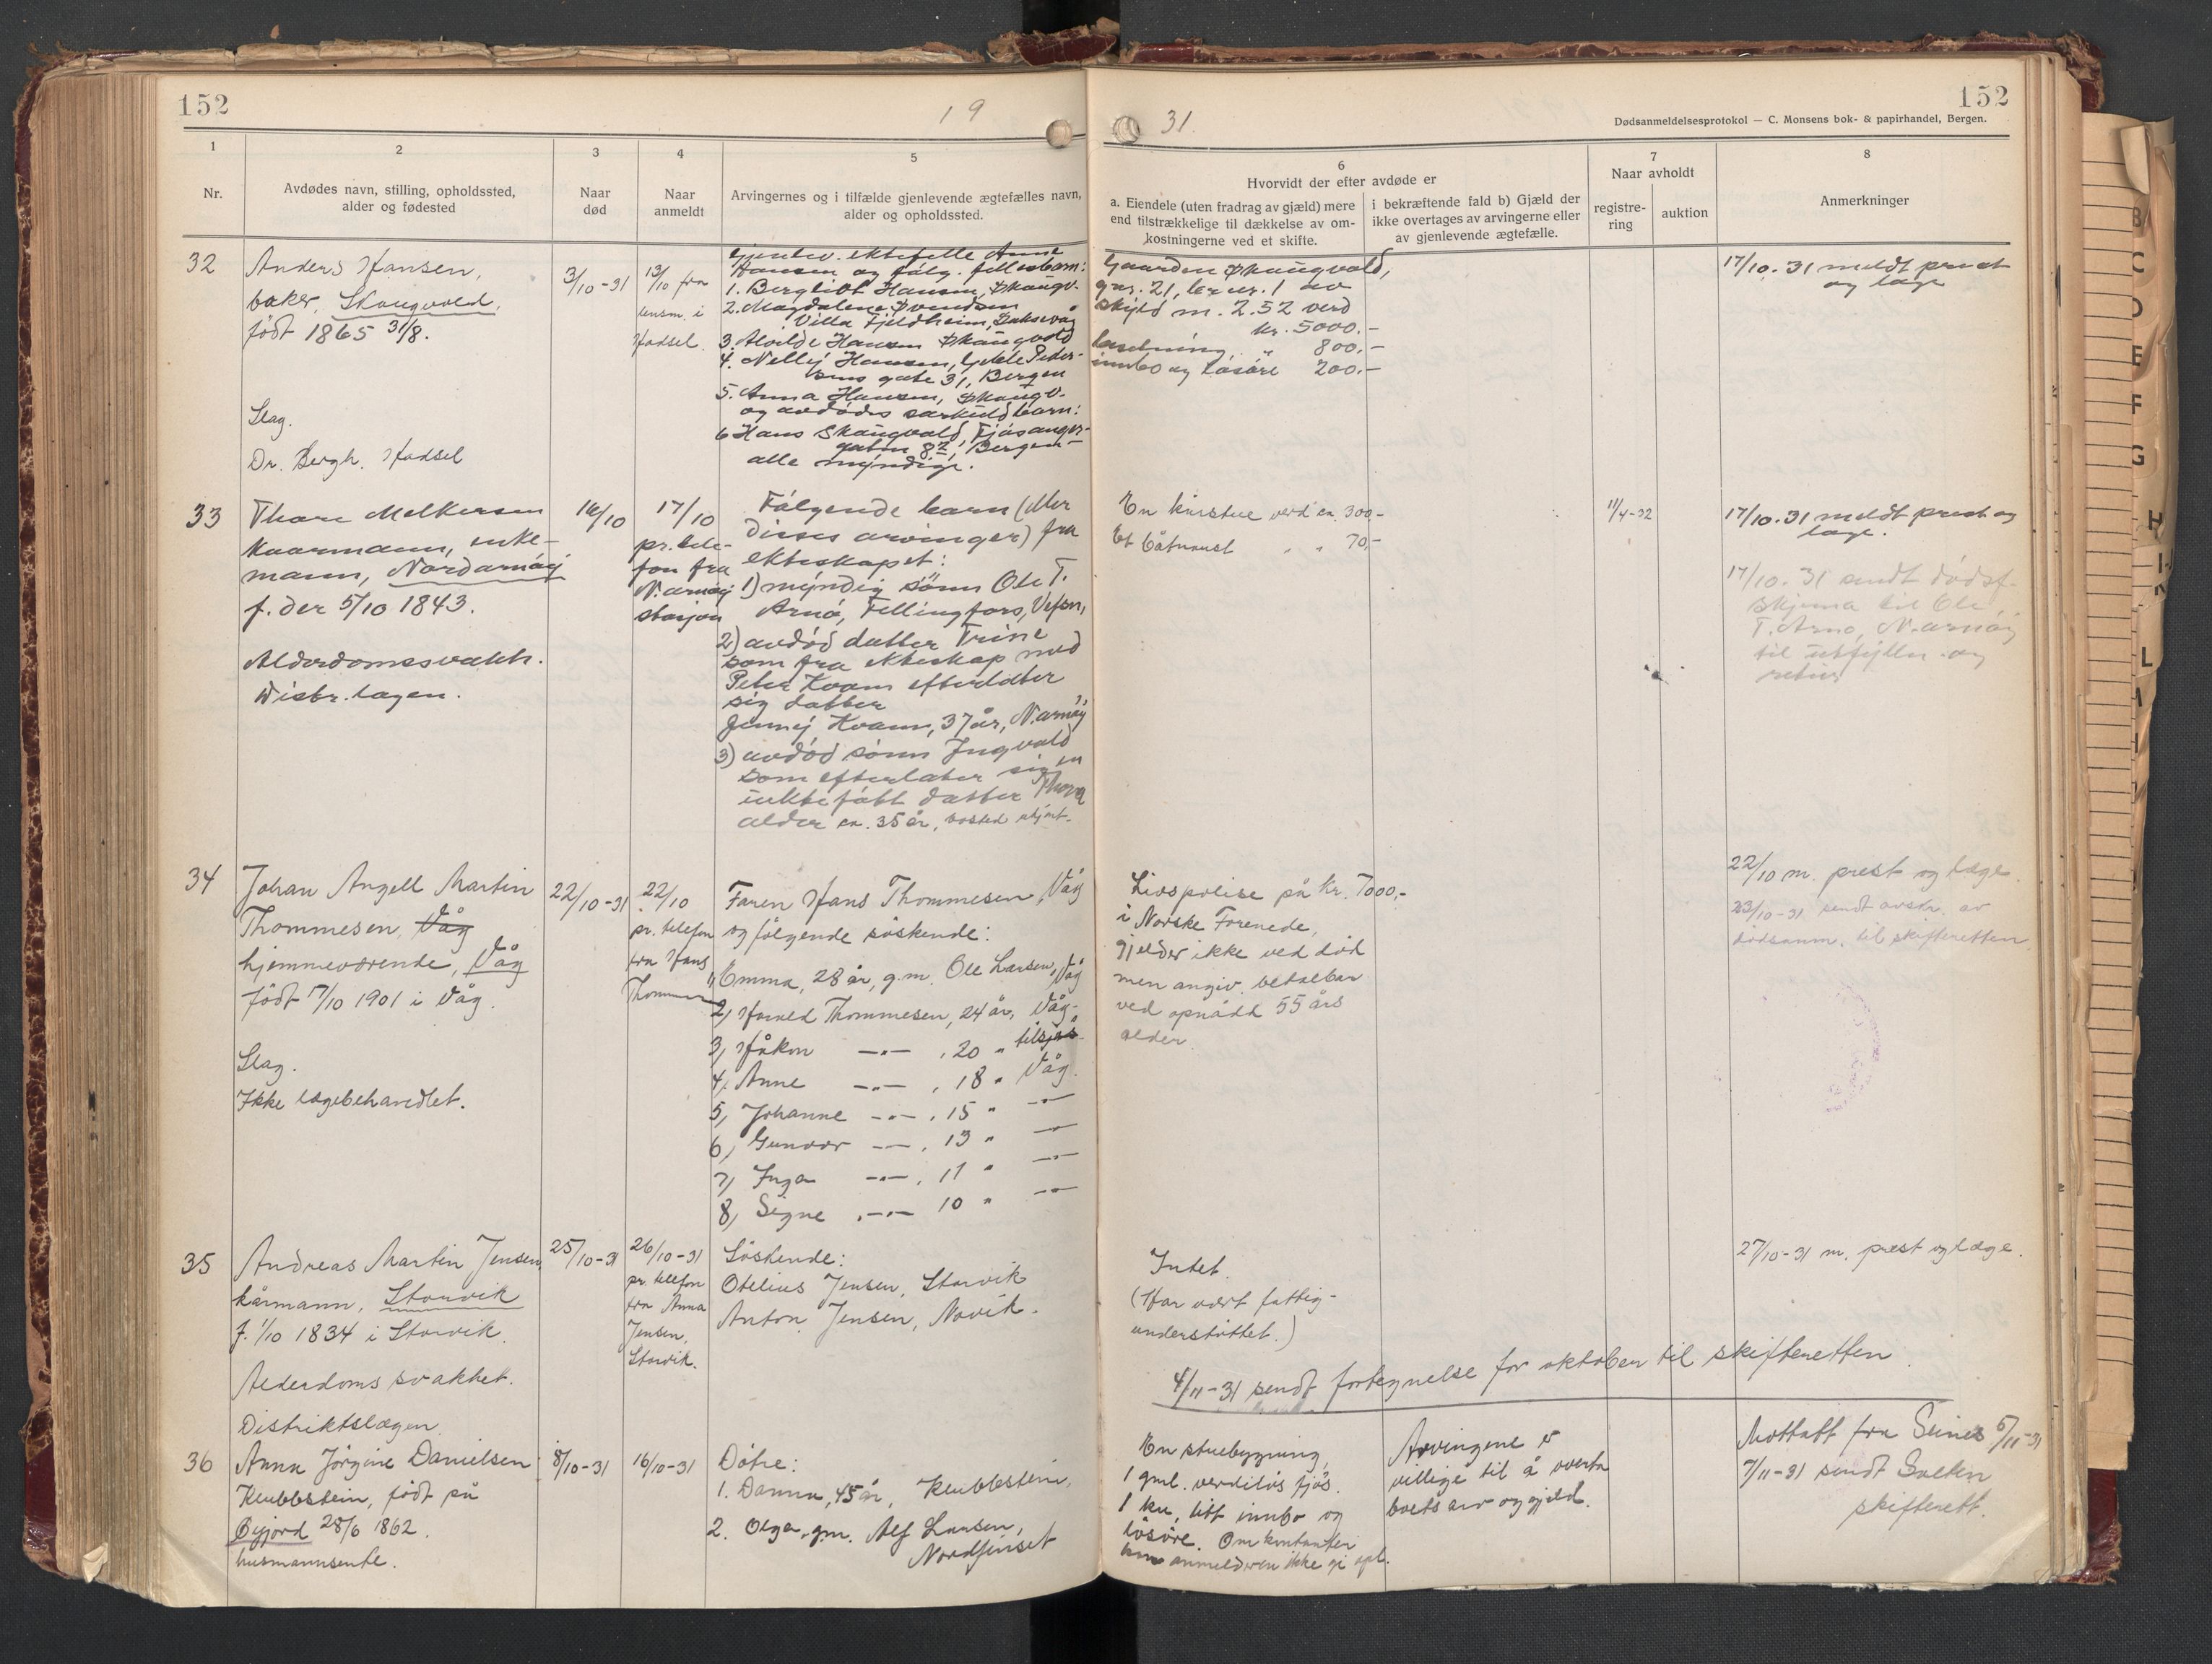 152
19
31.
152
Dødsanmeldelsesprotokol — C. Monsens bok- & papirhandel, Bergen.
1
Nr.
2
Avdødes navn, stilling, opholdssted,
alder og fødested
3
Naar
død
4
Naar
anmeldt
5
Arvingernes og i tilfælde gjenlevende ægtefælles navn,
alder og opholdssted.
6
Hvorvidt der efter avdøde er
a. Eiendele (uten fradrag av gjæld) mere
end tilstrækkelige til dækkelse av om-
kostningerne ved et skifte.
i bekræftende fald b) Gjæld der
ikke overtages av arvingerne eller
av gjenlevende ægtefælle.
7
Naar avholdt
registre-
ring
auktion
8
Anmerkninger
32
Anders Hansen,
baker, Skaugvold,
født 1865 31/8.
Slag.
Dr. Bergh. Hadsel
3/10-31
13/10 fra
lensm. i
Hadsel.
Gjenlev. ektefelle Anne
Hansen og følg. fellesbarn:
1. Bergliot Hansen, Skaugv.
2. Magdalene Svendsen
Villa Fjeldheim, Laksevåg
3. Alvilde Hansen Skaugvold
4. Nelly Hansen, Gjekle Peder-
sens gate 31, Bergen
5. Anna Hansen, Skaugv.
og avdødes særkuldbarn:
6 Hans Skaugvold, Fjøsanger-
gaten 8, Bergen-
alle myndige.
Gaarden Skaugvold,
gnr. 21, br.nr. 1 av
skyld m. 2.52 verd
kr. 5000.-
besetning " 800.-
innbo og løsøre 200.-
17/10.31 meldt prest
og læge
33
Thore Melkersen
kaarmann, enke-
mann, Nordarnøy
f. der 5/10 1843.
Alderdomssvakh.
Distr.lægen.
16/10
17/10
pr. tele-
fon fra
N.arnøy
stasjon
Følgende barn (eller
disses arvinger) fra
ekteskapet:
1) myndig sønn Ole T.
Arnø, Fellingfors, Vefsn,
2) avdød datter Trine
som fra ekteskap med
Peter Kvam efterlater
sig datter
Jenny Kvam, 37 år, N.arnøy
3) avdød sønn Ingvald
som efterlater sig en
uektefødt datter Thora
alder ca. 35 år, bosted ukjent.
En kårstue verd ca. 300,-
Et båtnaust " " 70,-
11/4-32
17/10.31 meldt prest og
læge.
17/10.31 sendt dødsf.
skjema til Ole
T. Arnø, N.arnøy
til utfyllen og
retur
34
Johan Angell Martin
Thommesen, Våg
hjemmeværende, Våg
født 17/10 1901 i Våg.
Slag.
Ikke lægebehandlet.
22/10-31
22/10
pr. telefon
fra Hans
Thommesen
Faren Hans Thommesen, Våg
og følgende søskende:
1, Emma, 28 år, g.m. Ole Larsen, Våg
2, Harald Thommesen, 24 år, Våg,
3, Håkon —"— , 20 " tilsjøs
4, Anne —"— , 18 " Våg.
5, Johanne —"— , 15 " —"—
6, Gunvor —"— , 13 " —"—
7, Inga —"— , 11 " —"—
8, Signe —"— 10 " —"—
Livspolise på kr. 7000,-
i Norske Forenede,
gjelder ikke ved død
men angiv. betalbar
ved opnådd 55 års
alder.
22/10 m. prest og læge.
23/10-31 sendt avskr. av
dødsanm. til skifteretten
35
Andreas Martin Jensen,
kårmann, Storvik
f. 1/10 1834 i Storvik.
Alderdomssvakhet.
Distriktslægen.
25/10-31
26/10-31
pr. telefon
fra Anna
Jensen,
Storvik.
Søskende:
Otelius Jensen, Storvik
Anton Jensen, Novik.
Intet.
(Har vært fattig-
understøttet.)
27/10-31 m. prest og læge.
4/11-31 sendt fortegnelse for oktober til skifteretten.
36
Anna Jörgine Danielsen
Klubbstein, født på
Øyjord 28/6 1862.
husmannsenke.
8/10-31
16/10-31
Døtre:
1. Danna, 45 år, Klubbstein,
2. Olga, gm. Alf Larsen,
Nordfinset
En stuebygning,
1 gml. verdiløs fjøs.
1 ku, litt innbo og
løsøre. Om kontanter
kan anmelderen ikke gi opl.
Arvingene er
villige til å overta
boets arv og gjeld.
Mottatt fra Seines 5/11-31
7/11-31 sendt Salten
skifterett.
B
C
D
E
F
G
H
L